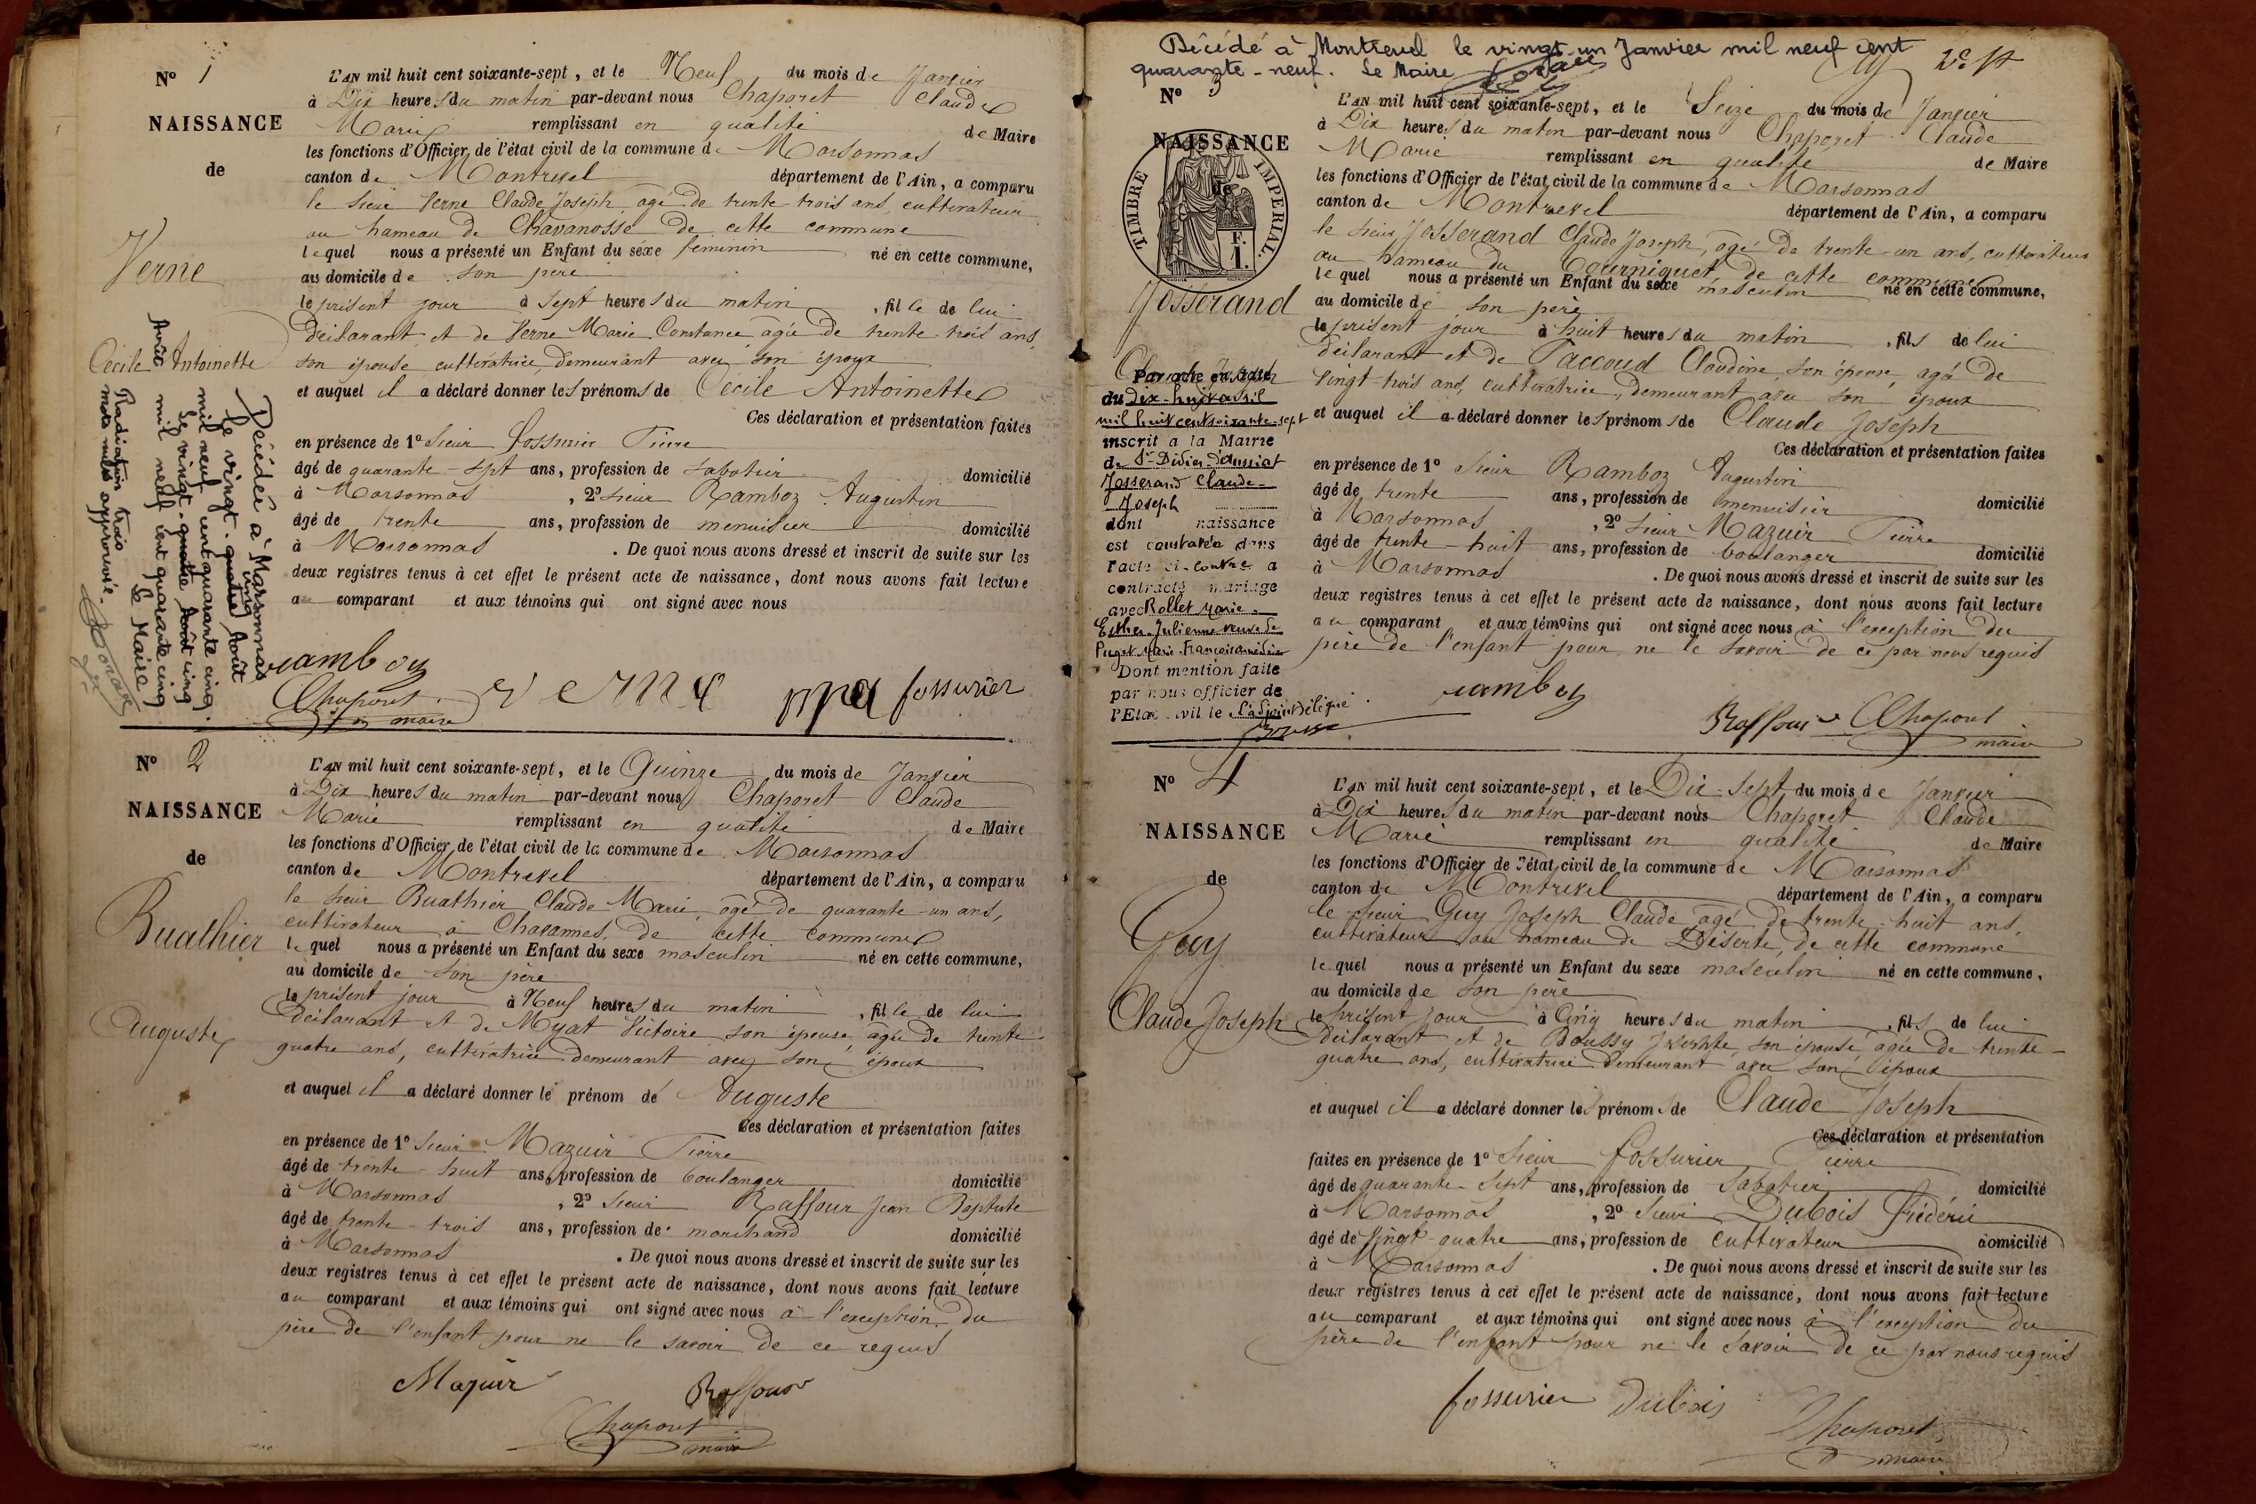 N° 1
NAISSANCE
de
Verne
Cécile Antoinette
L'AN mil huit cent soixante-sept, et le Neuf du mois de Janvier
à Dix heures du matin par-devant nous Chaporet Claude
Marie remplissant en qualité de Maire
les fonctions d'Officier de l'état civil de la commune de Marsonnas
canton de Montrevel département de l'Ain, a comparu
le sieur Verne Claude Joseph âgé de trente trois ans, cultivateur
au hameau de Chavanosse de cette commune
lequel nous a présenté un Enfant du sexe féminin né en cette commune,
au domicile de son père
le présent jour à sept heures du matin, fille de lui
déclarant et de Verne Marie Constance âgée de trente trois ans,
son épouse cultivatrice, demeurant avec son époux
et auquel il a déclaré donner les prénoms de Cécile Antoinette
Ces déclaration et présentation faites
en présence de 1° sieur Fossurier Pierre
âgé de quarante-sept ans, profession de sabotier domicilié
à Marsonnas, 2° sieur Ramboz Augustin
âgé de trente ans, profession de menuisier domicilié
à Marsonnas. De quoi nous avons dressé et inscrit de suite sur les
deux registres tenus à cet effet le présent acte de naissance, dont nous avons fait lecture
au comparant et aux témoins qui ont signé avec nous
ramboz
Chaporet verne fossurier
maire
Décédée à Marsonnas
le vingt-quatre Août
cinq
mil neuf cent quarante cinq.
Le vingt quatre Août cinq
Août
mil neuf cent quarante cinq
Le Maire
Radiation trois
mots nuls approuvée.
N° 2
NAISSANCE
de
Buathier
Auguste
L'AN mil huit cent soixante-sept, et le Quinze du mois de Janvier
à Dix heures du matin par-devant nous Chaporet Claude
Marie remplissant en qualité de Maire
les fonctions d'Officier de l'état civil de la commune de Marsonnas
canton de Montrevel département de l'Ain, a comparu
le sieur Buathier Claude Marie, âgé de quarante-un ans,
cultivateur à Chavannes, de cette commune
lequel nous a présenté un Enfant du sexe masculin né en cette commune,
au domicile de son père
le présent jour à Neuf heures du matin, fille de lui
déclarant et de Myat Victoire son épouse, âgée de trente
quatre ans, cultivatrice demeurant avec son époux
et auquel il a déclaré donner le prénom de Auguste
Ces déclaration et présentation faites
en présence de 1° sieur Mazuir Pierre
âgé de trente-huit ans, profession de boulanger domicilié
à Marsonnas, 2° sieur Raffour Jean Baptiste
âgé de trente-trois ans, profession de marchand domicilié
à Marsonnas. De quoi nous avons dressé et inscrit de suite sur les
deux registres tenus à cet effet le présent acte de naissance, dont nous avons fait lecture
au comparant et aux témoins qui ont signé avec nous à l'exception du
père de l'enfant pour ne le savoir de ce requis
Mazuir Raffour
Chaporet
maire
Décédé à Montrevel le vingt-un Janvier mil neuf cent
quarante-neuf. Le Maire
N° 3
NAISSANCE
de
TIMBRE IMPERIAL
F.
1.
Josserand
Claude Joseph
Par acte en date
du dix-huit avril
mil huit cent soixante-sept
inscrit a la Mairie
de St-Didier-d'Aussiat
Josserand Claude-
Joseph
dont naissance
est constatée dans
l'acte ci-contre a
contracté mariage
avec Rollet Marie-
Esther-Julienne veuve de
Puget Marie-François
Dont mention faite
par nous officier de
l'Etat civil le L'adjoint délégué
L'AN mil huit cent soixante-sept, et le Seize du mois de Janvier
à Dix heures du matin par-devant nous Chaporet Claude
Marie remplissant en qualité de Maire
les fonctions d'Officier de l'état civil de la commune de Marsonnas
canton de Montrevel département de l'Ain, a comparu
le sieur Josserand Claude Joseph, âgé de trente-un ans, cultivateur
au hameau du Tourniquet, de cette commune
lequel nous a présenté un Enfant du sexe masculin né en cette commune,
au domicile de son père
le présent jour à huit heures du matin, fils de lui
déclarant et de Paccoud Claudine, son épouse, agé de
vingt-trois ans, cultivatrice, demeurant avec son époux
et auquel il a déclaré donner les prénoms de Claude Joseph
Ces déclaration et présentation faites
en présence de 1° sieur Ramboz Augustin
âgé de trente ans, profession de menuisier domicilié
à Marsonnas, 2° sieur Mazuir Pierre
âgé de trente-huit ans, profession de boulanger domicilié
à Marsonnas. De quoi nous avons dressé et inscrit de suite sur les
deux registres tenus à cet effet le présent acte de naissance, dont nous avons fait lecture
au comparant et aux témoins qui ont signé avec nous à l'exception du
père de l'enfant pour ne le savoir de ce par nous requis
ramboz
Raffour Chaporet
maire
N° 4
NAISSANCE
de
Guy
Claude Joseph
L'AN mil huit cent soixante-sept, et le Dix-Sept du mois de Janvier
à Dix heures du matin par-devant nous Chaporet Claude
Marie remplissant en qualité de Maire
les fonctions d'Officier de l'état civil de la commune de Marsonnas
canton de Montrevel département de l'Ain, a comparu
le sieur Guy Joseph Claude âgé de trente-huit ans,
cultivateur au hameau de Déserte, de cette commune
lequel nous a présenté un Enfant du sexe masculin né en cette commune,
au domicile de son père
le présent jour à Cinq heures du matin, fils de lui
déclarant et de Boussy son épouse âgée de trente-
quatre ans, cultivatrice demeurant avec son époux
et auquel il a déclaré donner les prénoms de Claude Joseph
Ces déclaration et présentation
faites en présence de 1° sieur Fossurier Pierre
âgé de quarante-sept ans, profession de Sabotier domicilié
à Marsonnas, 2° sieur Dubois Frédéric
âgé de Vingt-quatre ans, profession de cultivateur domicilié
à Marsonnas. De quoi nous avons dressé et inscrit de suite sur les
deux registres tenus à cet effet le présent acte de naissance, dont nous avons fait lecture
au comparant et aux témoins qui ont signé avec nous à l'exception du
père de l'enfant pour ne le savoir de ce par nous requis
fossurier Dubois
Chaporet
maire